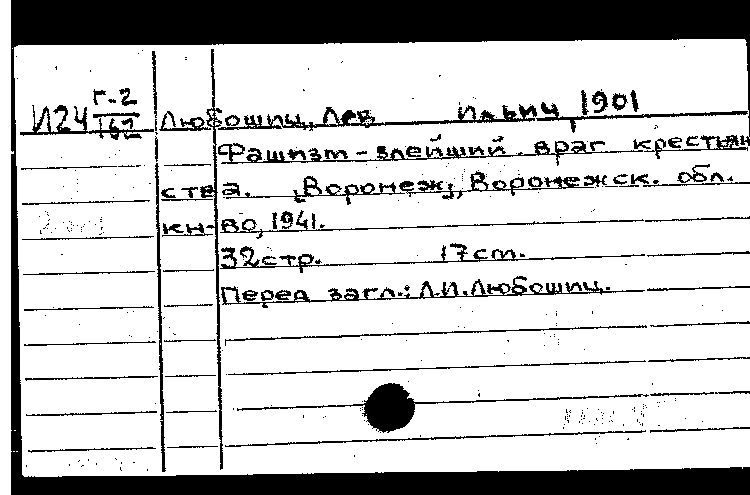 И24 Г-2/162 Любошиц, Лев Ильич, 1901
Фашизм - злейший враг крестьян
ства. [Воронеж], Воронежск. обл.
кн-во, 1941.
32стр. 17см.
Перед загл.: Л.И.Любошиц.